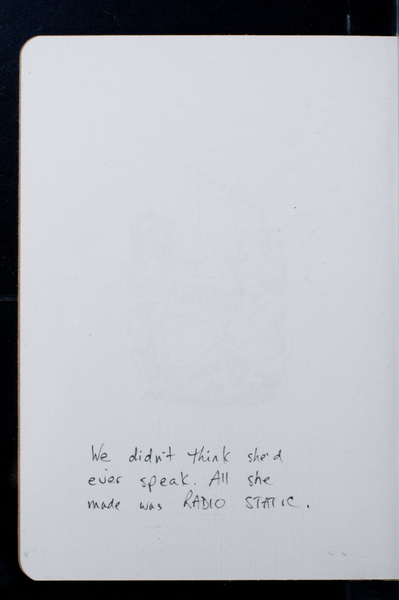 We didn't think she'd
ever speak. All she
made was RADIO STATIC.